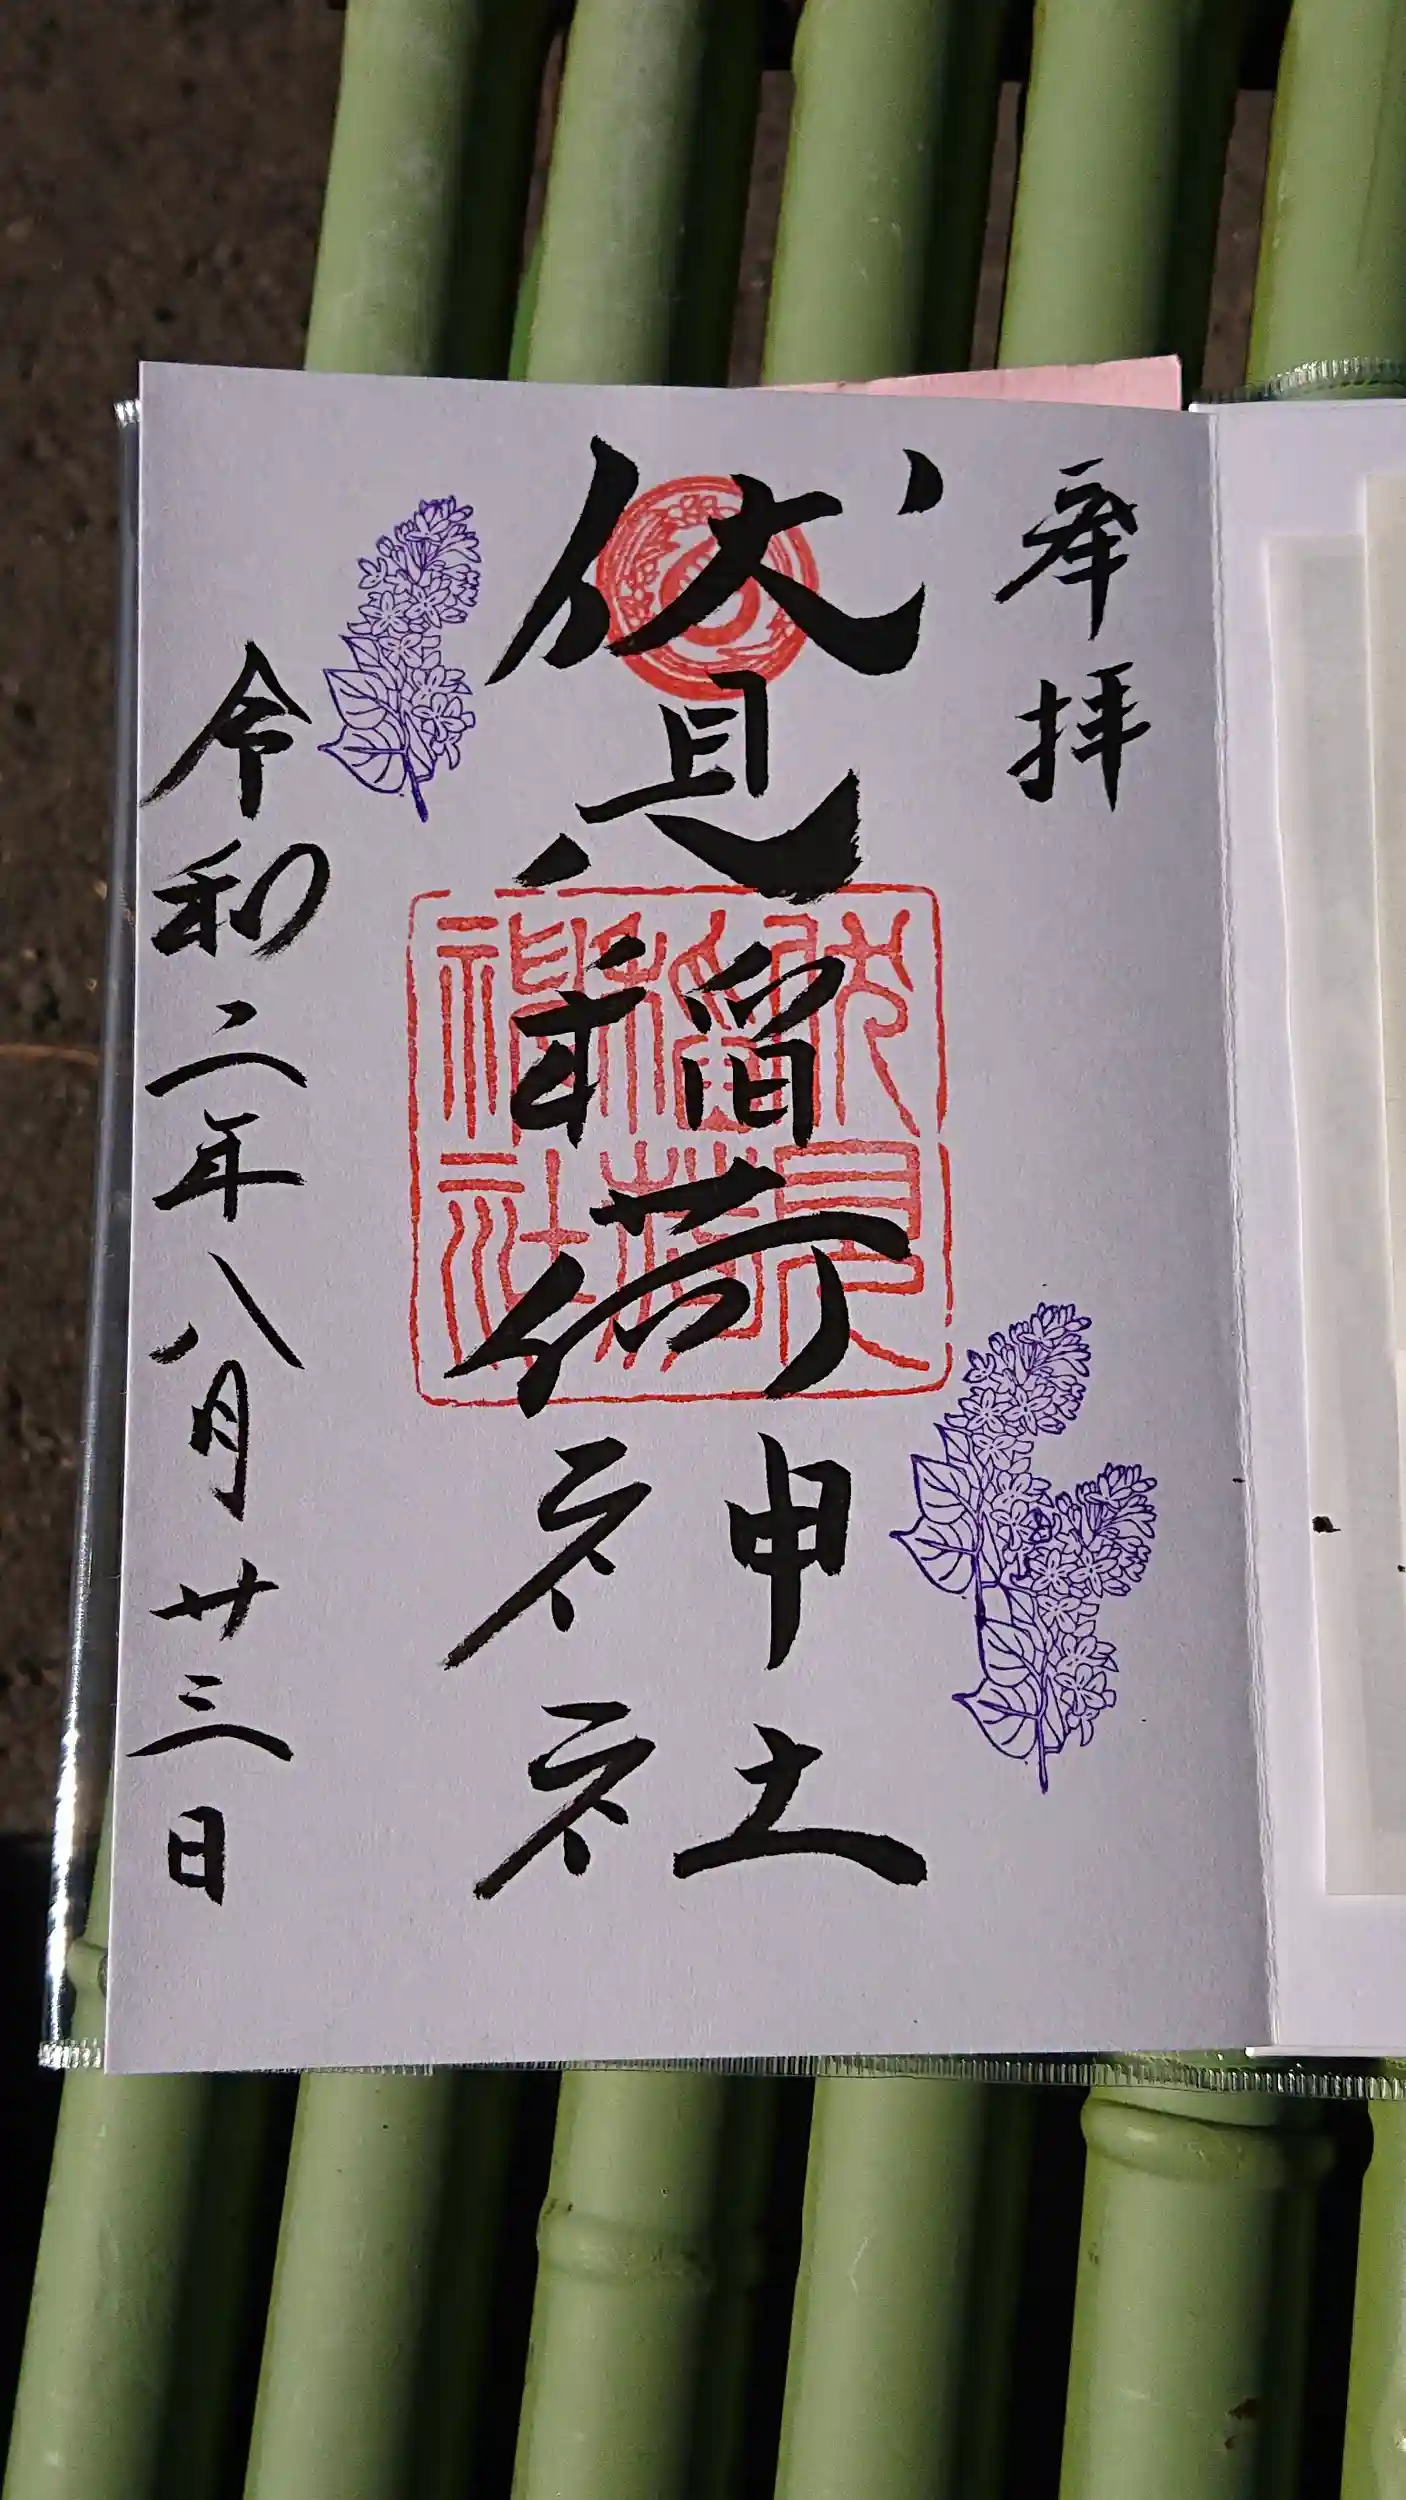 奉拝
伏見稲荷神社
伏見
稲荷
神社
令和二年八月廿三日